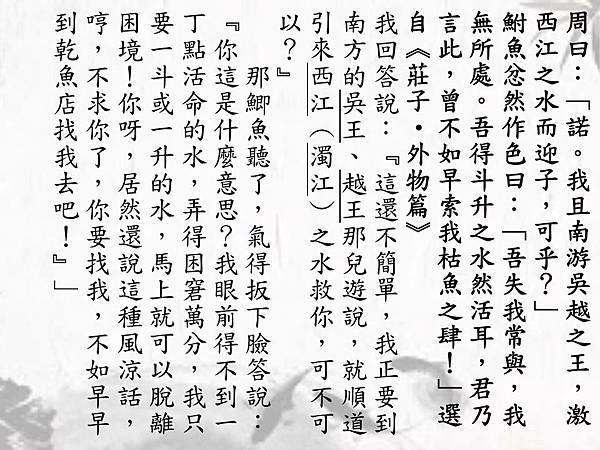 周曰：「諾。我且南游吳越之王，激
西江之水而迎子，可乎？」
鮒魚忿然作色曰：「吾失我常與，我
無所處。吾得斗升之水然活耳，君乃
言此，曾不如早索我枯魚之肆！」選
自《莊子‧外物篇》
我回答說：『這還不簡單，我正要到
南方的吳王、越王那兒遊說，就順道
引來西江（濁江）之水救你，可不可
以？』
那鯽魚聽了，氣得扳下臉答說：
『你這是什麼意思？我眼前得不到一
丁點活命的水，弄得困窘萬分，我只
要一斗或一升的水，馬上就可以脫離
困境！你呀，居然還說這種風涼話，
哼，不求你了，你要找我，不如早早
到乾魚店找我去吧！』」